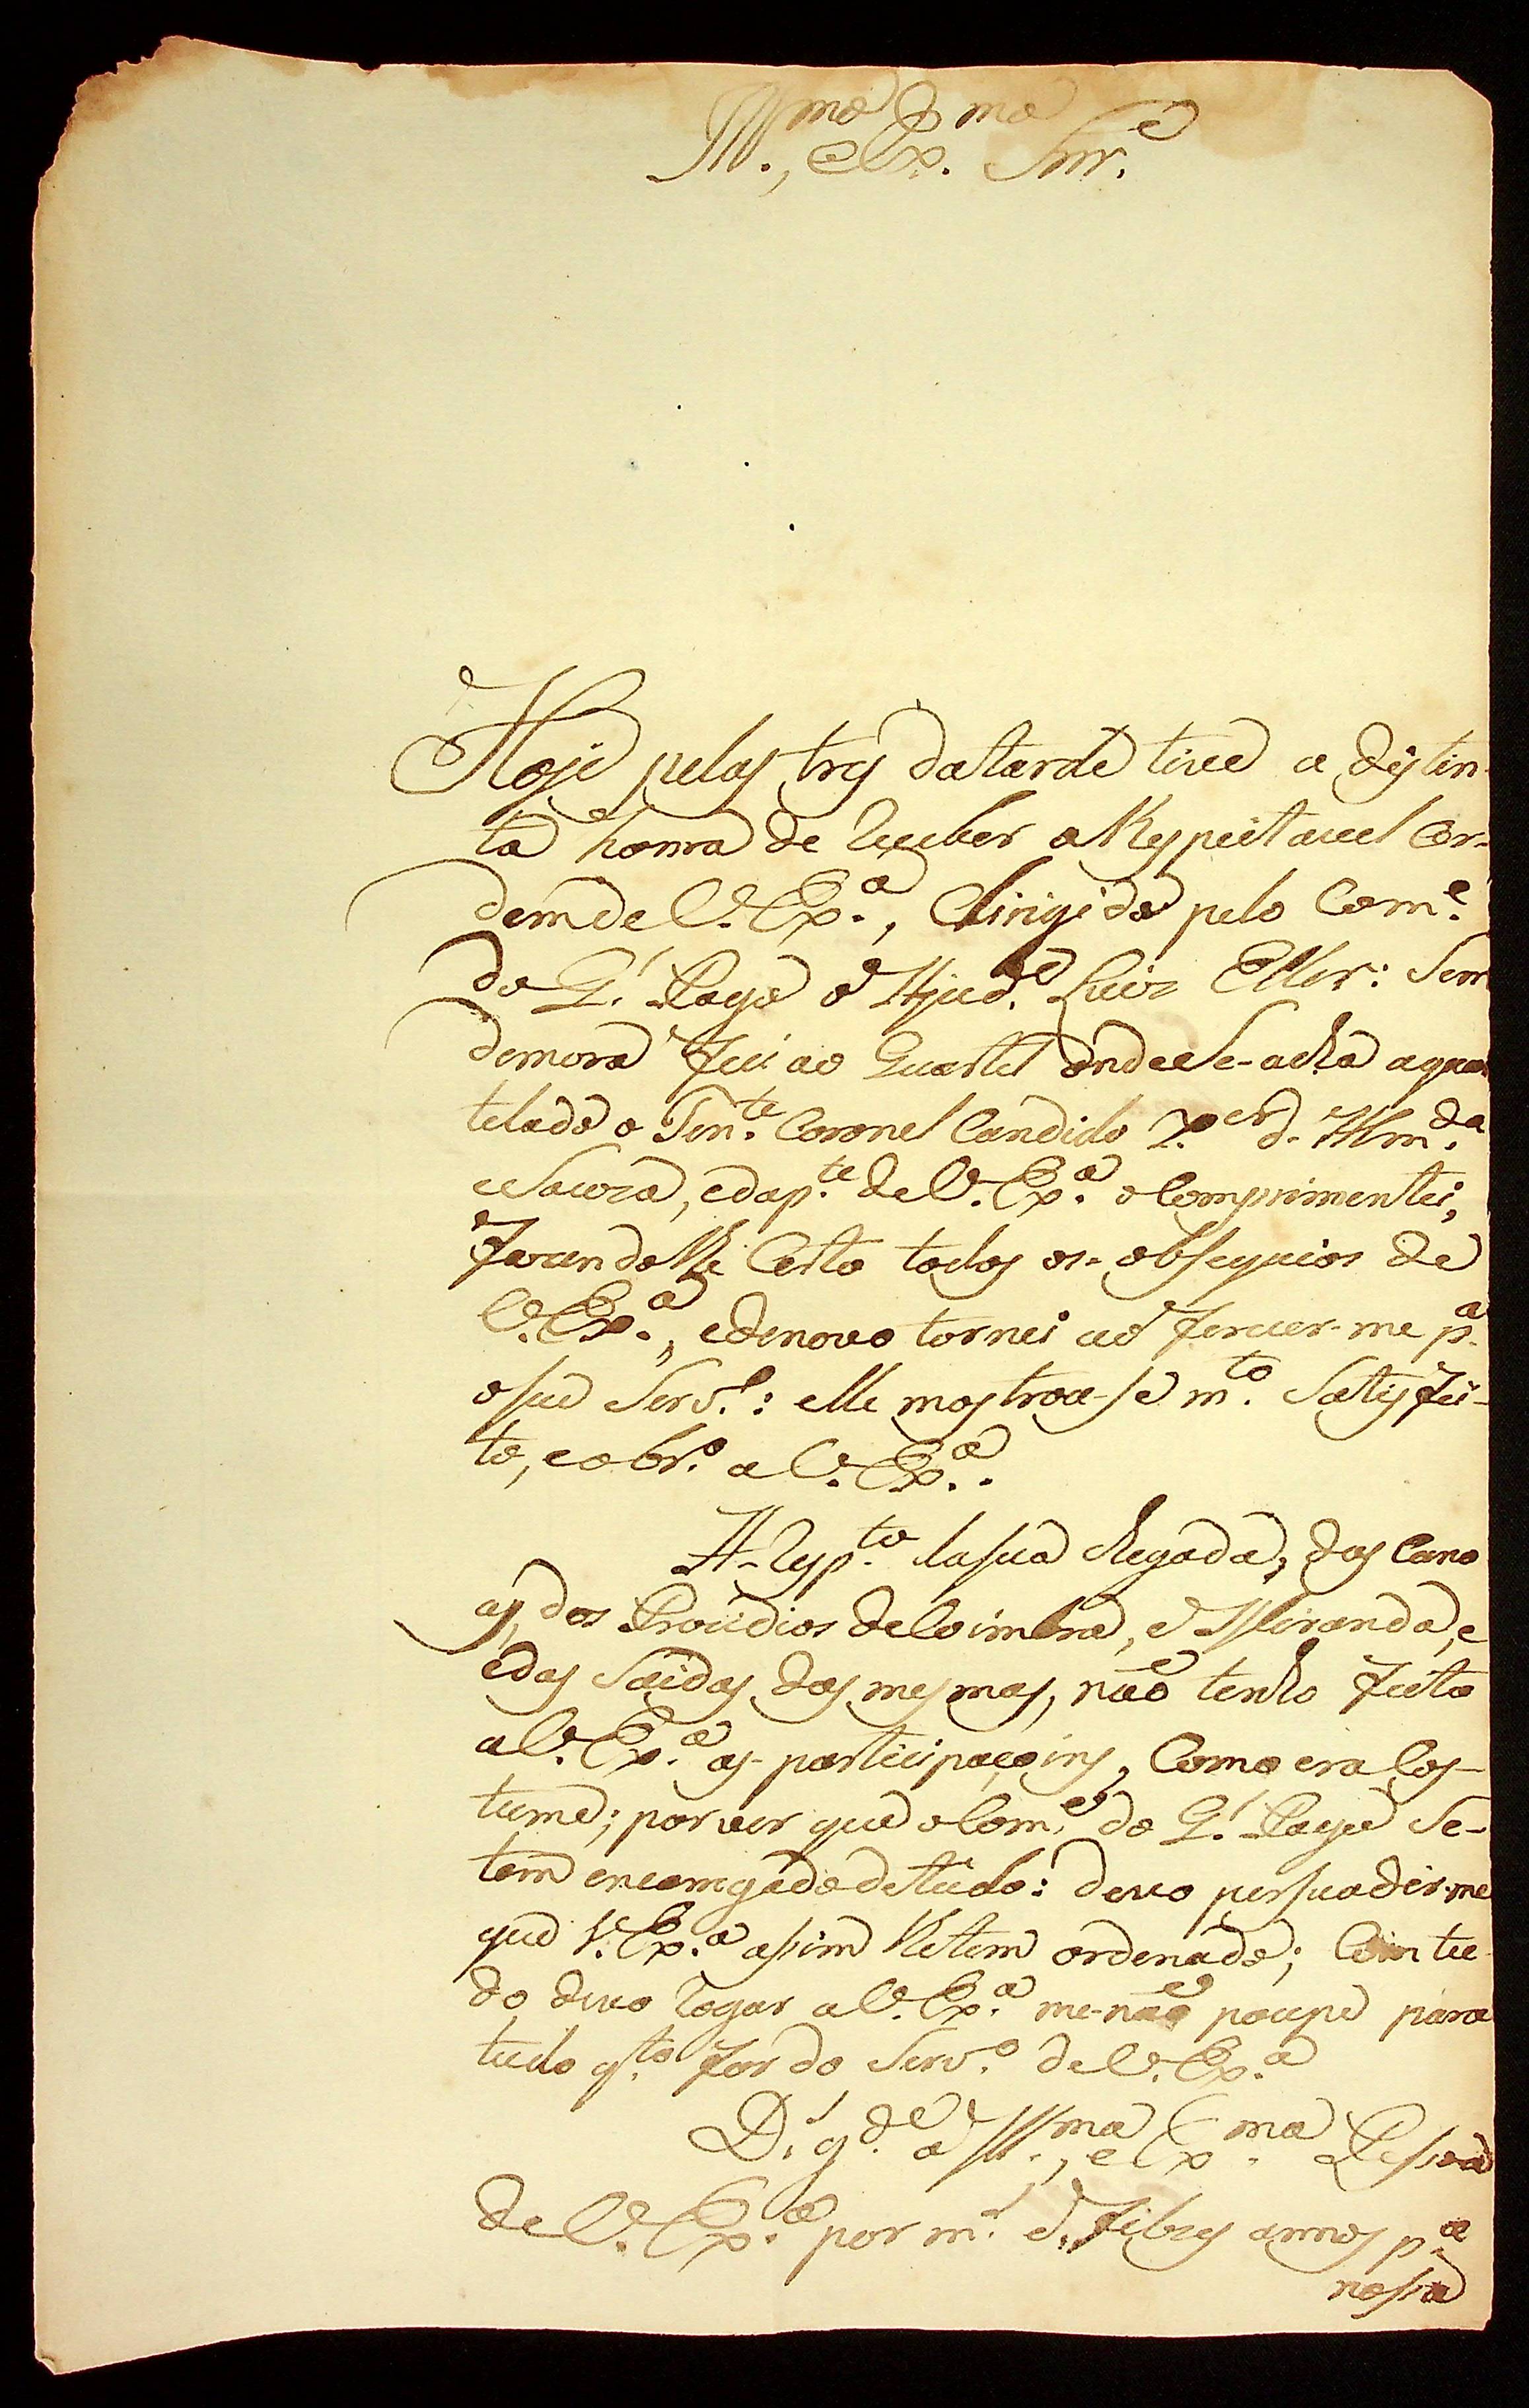 Ill.mo, e Ex.mo Snr.e
Hoje pelas tres datarde tive a distin-
ta honra de receber a Respeitavel Or-
dem de V. Ex.a, dirigida pelo Com.e
do G.l Pago o Ajud.e Luiz Eller: Sem
demora fui ao Quartel onde se-acha aquar
telado o Ten.te Coronel Candido X.er d. Alm.da
e Souza, edap.te de V. Ex.a o Comprimentei,
fazendolhe Certo todos os-obsequios de
V. Ex.a, edenovo tornei ao ferecer-me p.a
oseu Serv.o: elle mostrou-se m.to Satisfei-
to, eobr.o a V. Ex.a.
A-resp.to dasua chegada, das Cano
as, dos Prezidios de Coimbra, e Miranda, e
edas Saidas das mesmas, não tenho feito
a V. Ex.a as-participaçoins, Como era Cos-
tume; por ver que o Com.e do G.l Pago Se-
tem encarregado detudo: devo persuadir-me
que V. Ex.a assim lhetem ordenado; Com tu-
do, devo rogar a V. Ex.a me-não poupe para
tudo q.to for do Serv.o de V. Ex.a
D.s g.de a Ill.ma, e Ex.ma Pessoa
de V. Ex.a por m.s e, felizes annos p.a
nossa